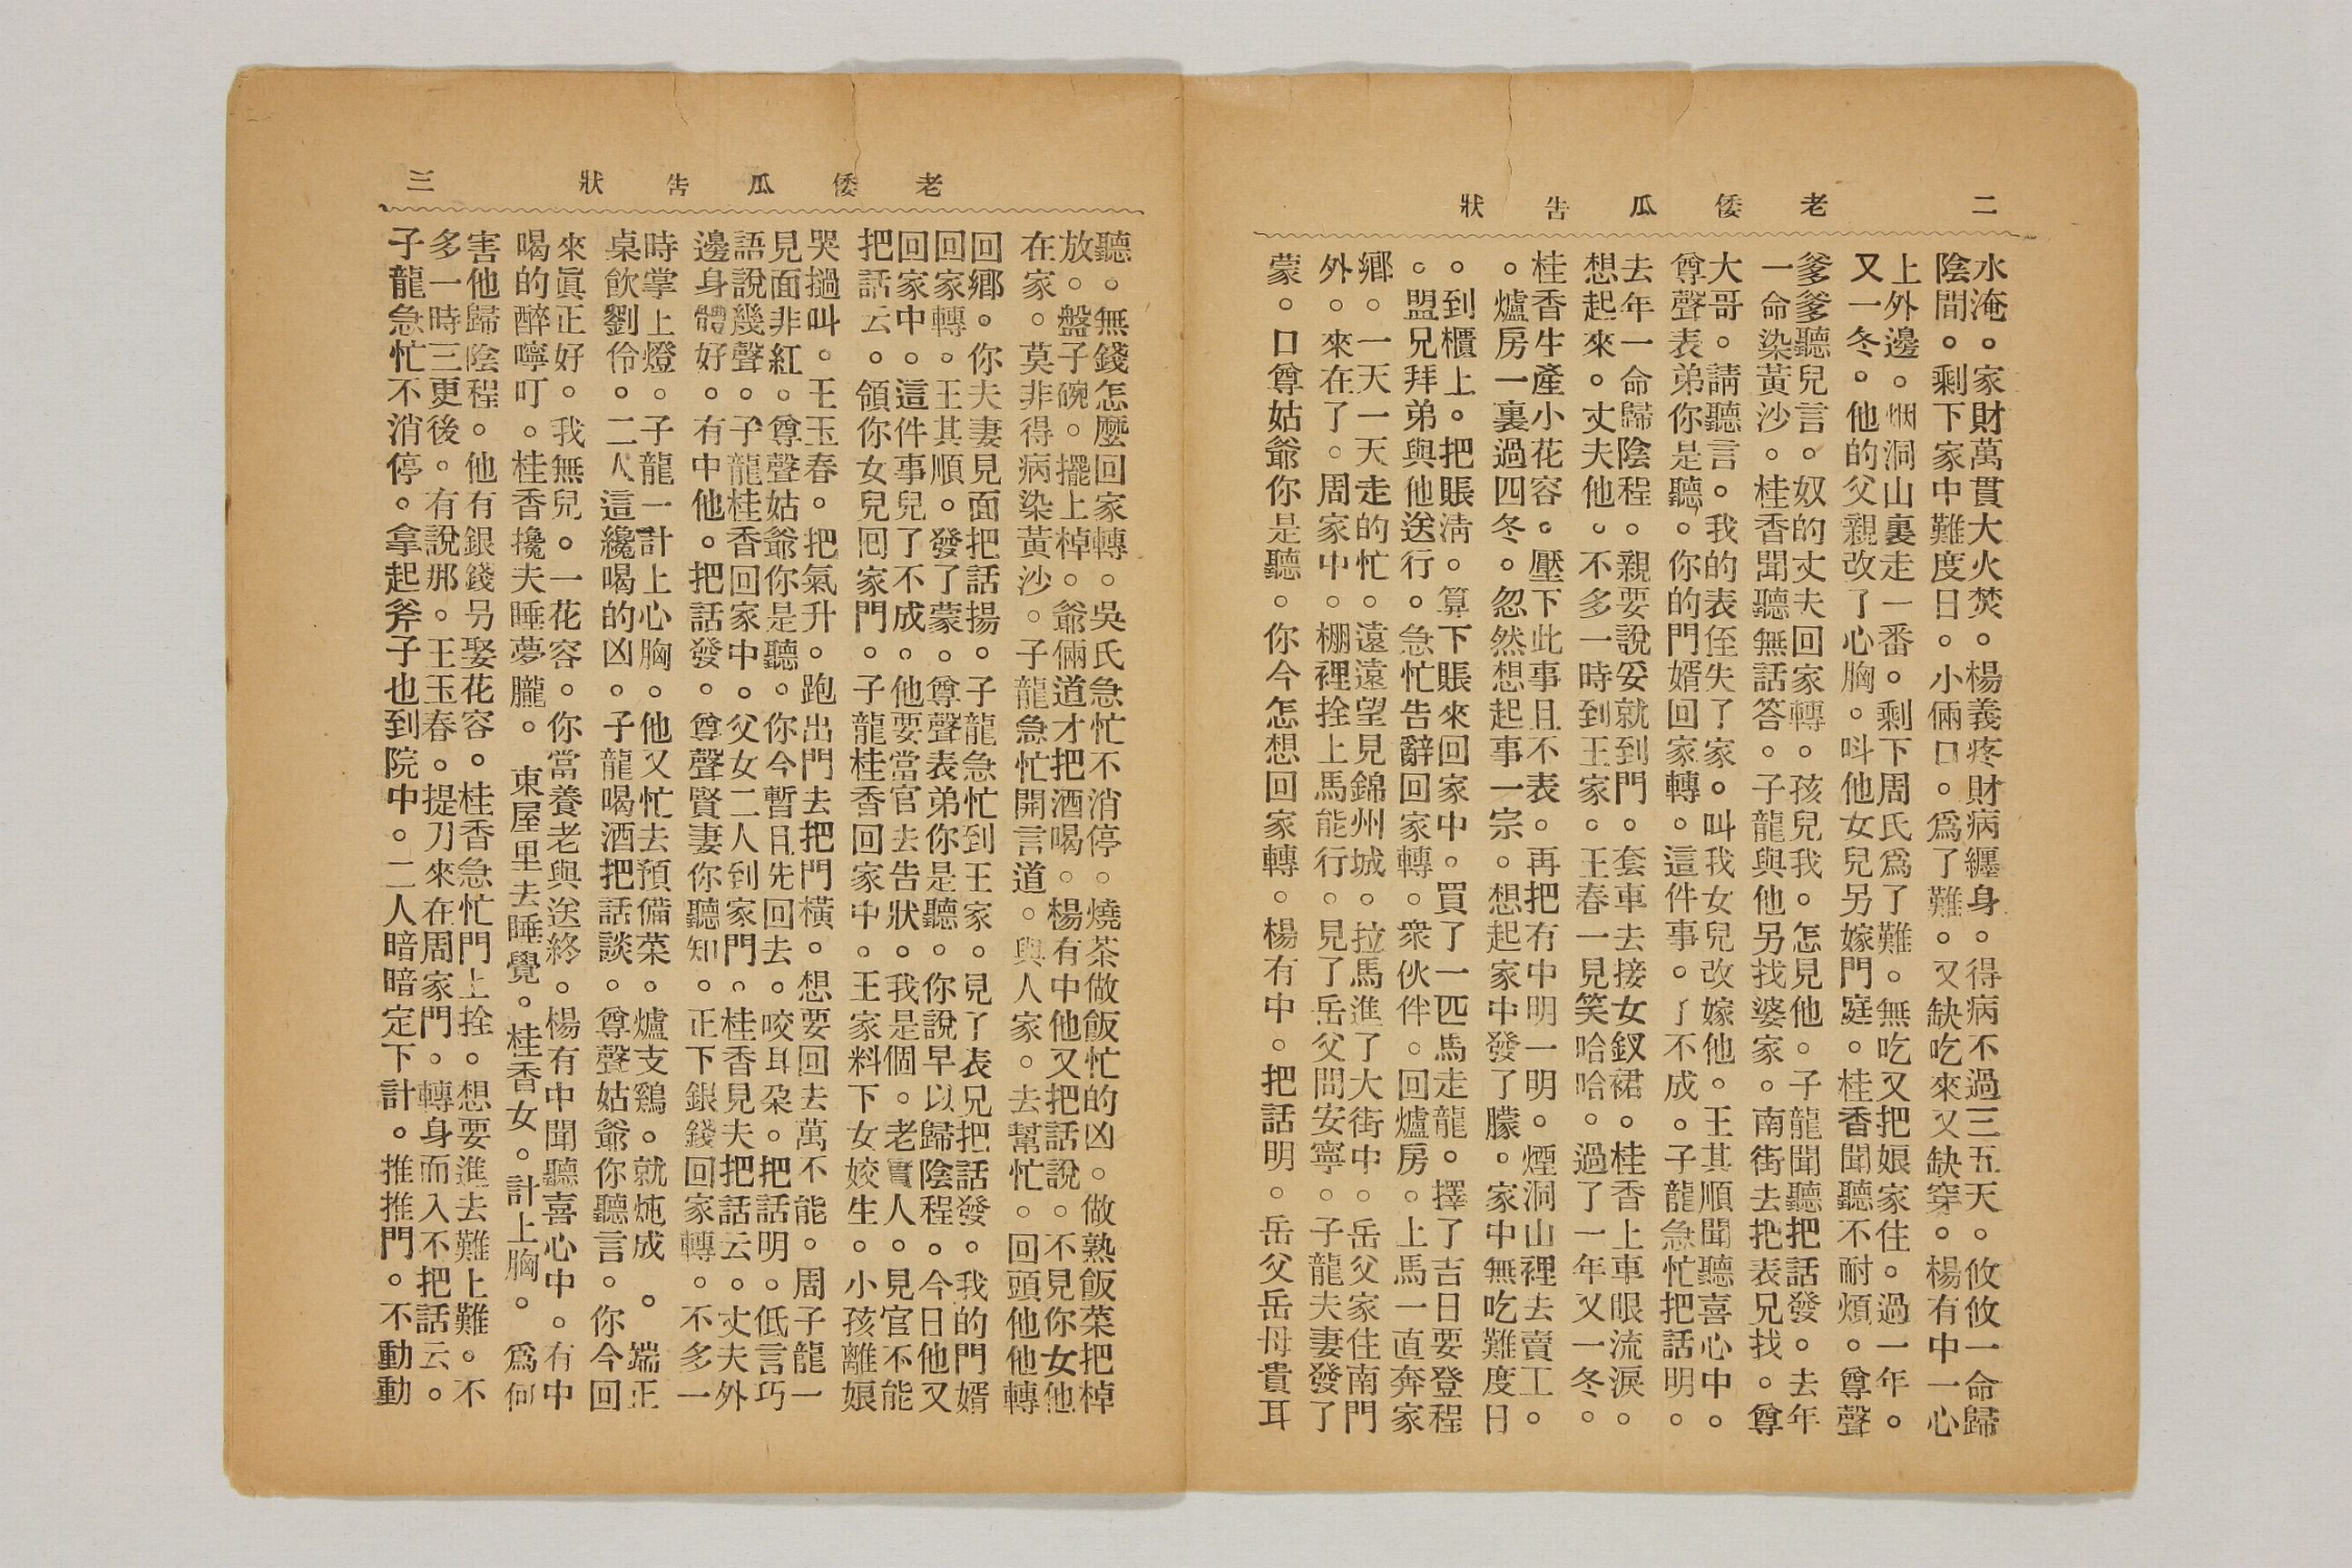 二　老倭瓜告狀
水淹。家財萬貫大火焚。楊義疼財病纒身。得病不過三五天。攸攸一命歸
陰間。剩下家中難度日。小倆口。爲了難。又缺吃來又缺穿。楊有中一心
上外邊。烟洞山裏走一番。剩下周氏爲了難。無吃又把娘家住。過一年。
又一冬。他的父親改了心胸。呌他女兒另嫁門庭。桂香聞聽不耐煩。尊聲
爹爹聽兒言。奴的丈夫回家轉。孩兒我。怎見他。子龍聞聽把話發。去年
一命染黃沙。桂香聞聽無話答。子龍與他另找婆家。南街去把表兄找。尊
大哥。請聽言。我的表侄失了家。叫我女兒改嫁他。王其順聞聽喜心中。
尊聲表弟你是聽。你的門婿回家轉。這件事。了不成。子龍急忙把話明。
去年一命歸陰程。親要說妥就到門。套車去接女釵裙。桂香上車眼流淚。
想起來。丈夫他。不多一時到王家。王春一見笑哈哈。過了一年又一冬。
桂香生產小花容。壓下此事且不表。再把有中明一明。煙洞山裡去賣工。
。爐房一裏過四冬。忽然想起事一宗。想起家中發了朦。家中無吃難度日
。到櫃上。把賬淸。算下賬來回家中。買了一匹馬走龍。擇了吉日要登程
。盟兄拜弟與他送行。急忙告辭回家轉。衆伙伴。回爐房。上馬一直奔家
鄉。一天一天走的忙。遠遠望見錦州城。拉馬進了大街中。岳父家住南門
外。來在了。周家中。棚裡拴上馬能行。見了岳父問安寧。子龍夫妻發了
蒙。口尊姑爺你是聽。你今怎想回家轉。楊有中。把話明。岳父岳母貴耳
老倭瓜告狀　三
聽。無錢怎麼回家轉。吳氏急忙不消停。燒茶做飯忙的凶。做熟飯菜把棹
放。盤子碗。擺上棹。爺倆道才把酒喝。楊有中他又把話說。不見你女他
在家。莫非得病染黃沙。子龍急忙開言道。與人家。去幫忙。回頭他他轉
回鄉。你夫妻見面把話揚。子龍急忙到王家。見了表兄把話發。我的門婿
回家轉。王其順。發了蒙。尊聲表弟你是聽。你說早以歸陰程。今日他又
回家中。這件事兒了不成。他要當官去告狀。我是個。老實人。見官不能
把話云。領你女兒囘家門。子龍桂香回家中。王家料下女姣生。小孩離娘
哭撾叫。王玉春。把氣升。跑出門去把門橫。想要回去萬不能。周子龍一
見面非紅。尊聲姑爺你是聽。你今暫且先回去。咬耳朶。把話明。低言巧
語說幾聲。子龍桂香回家中。父女二人到家門。桂香見夫把話云。丈夫外
邊身體好。有中他。把話發。尊聲賢妻你聽知。正下銀錢回家轉。不多一
時掌上燈。子龍一計上心胸。他又忙去預備菜。爐支鷄。就炖成。端正
桌飮劉伶。二人這纔喝的凶。子龍喝酒把話談。尊聲姑爺你聽言。你今回
來眞正好。我無兒。一花容。你當養老與送終。楊有中聞聽喜心中。有中
喝的醉嚀叮。桂香攙夫睡夢朧。東屋里去睡覺。桂香女。計上胸。爲何
害他歸陰程。他有銀錢另娶花容。桂香急忙門上拴。想要進去難上難。不
多一時三更後。有說那。王玉春。提刀來在周家門。轉身而入不把話云。
子龍急忙不消停。拿起斧子也到院中。二人暗暗定下計。推推門。不動動